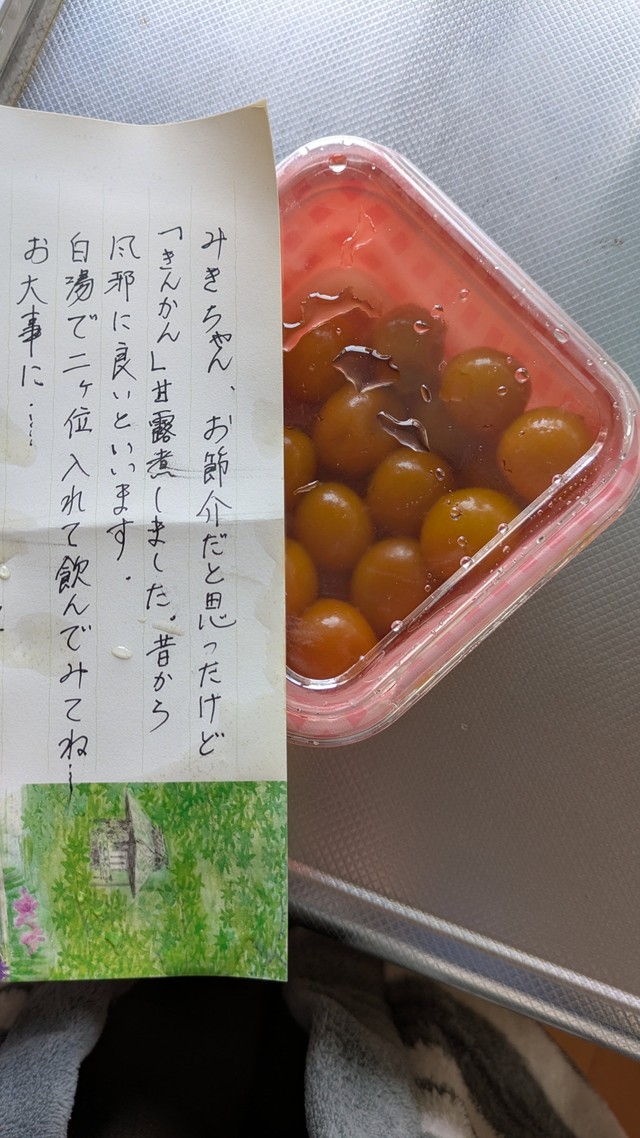 みきちゃん、お節介だと思ったけど
「きんかん」甘露煮しました。昔から
風邪に良いといいます.
白湯で二ヶ位入れて飲んでみてね…
お大事に……